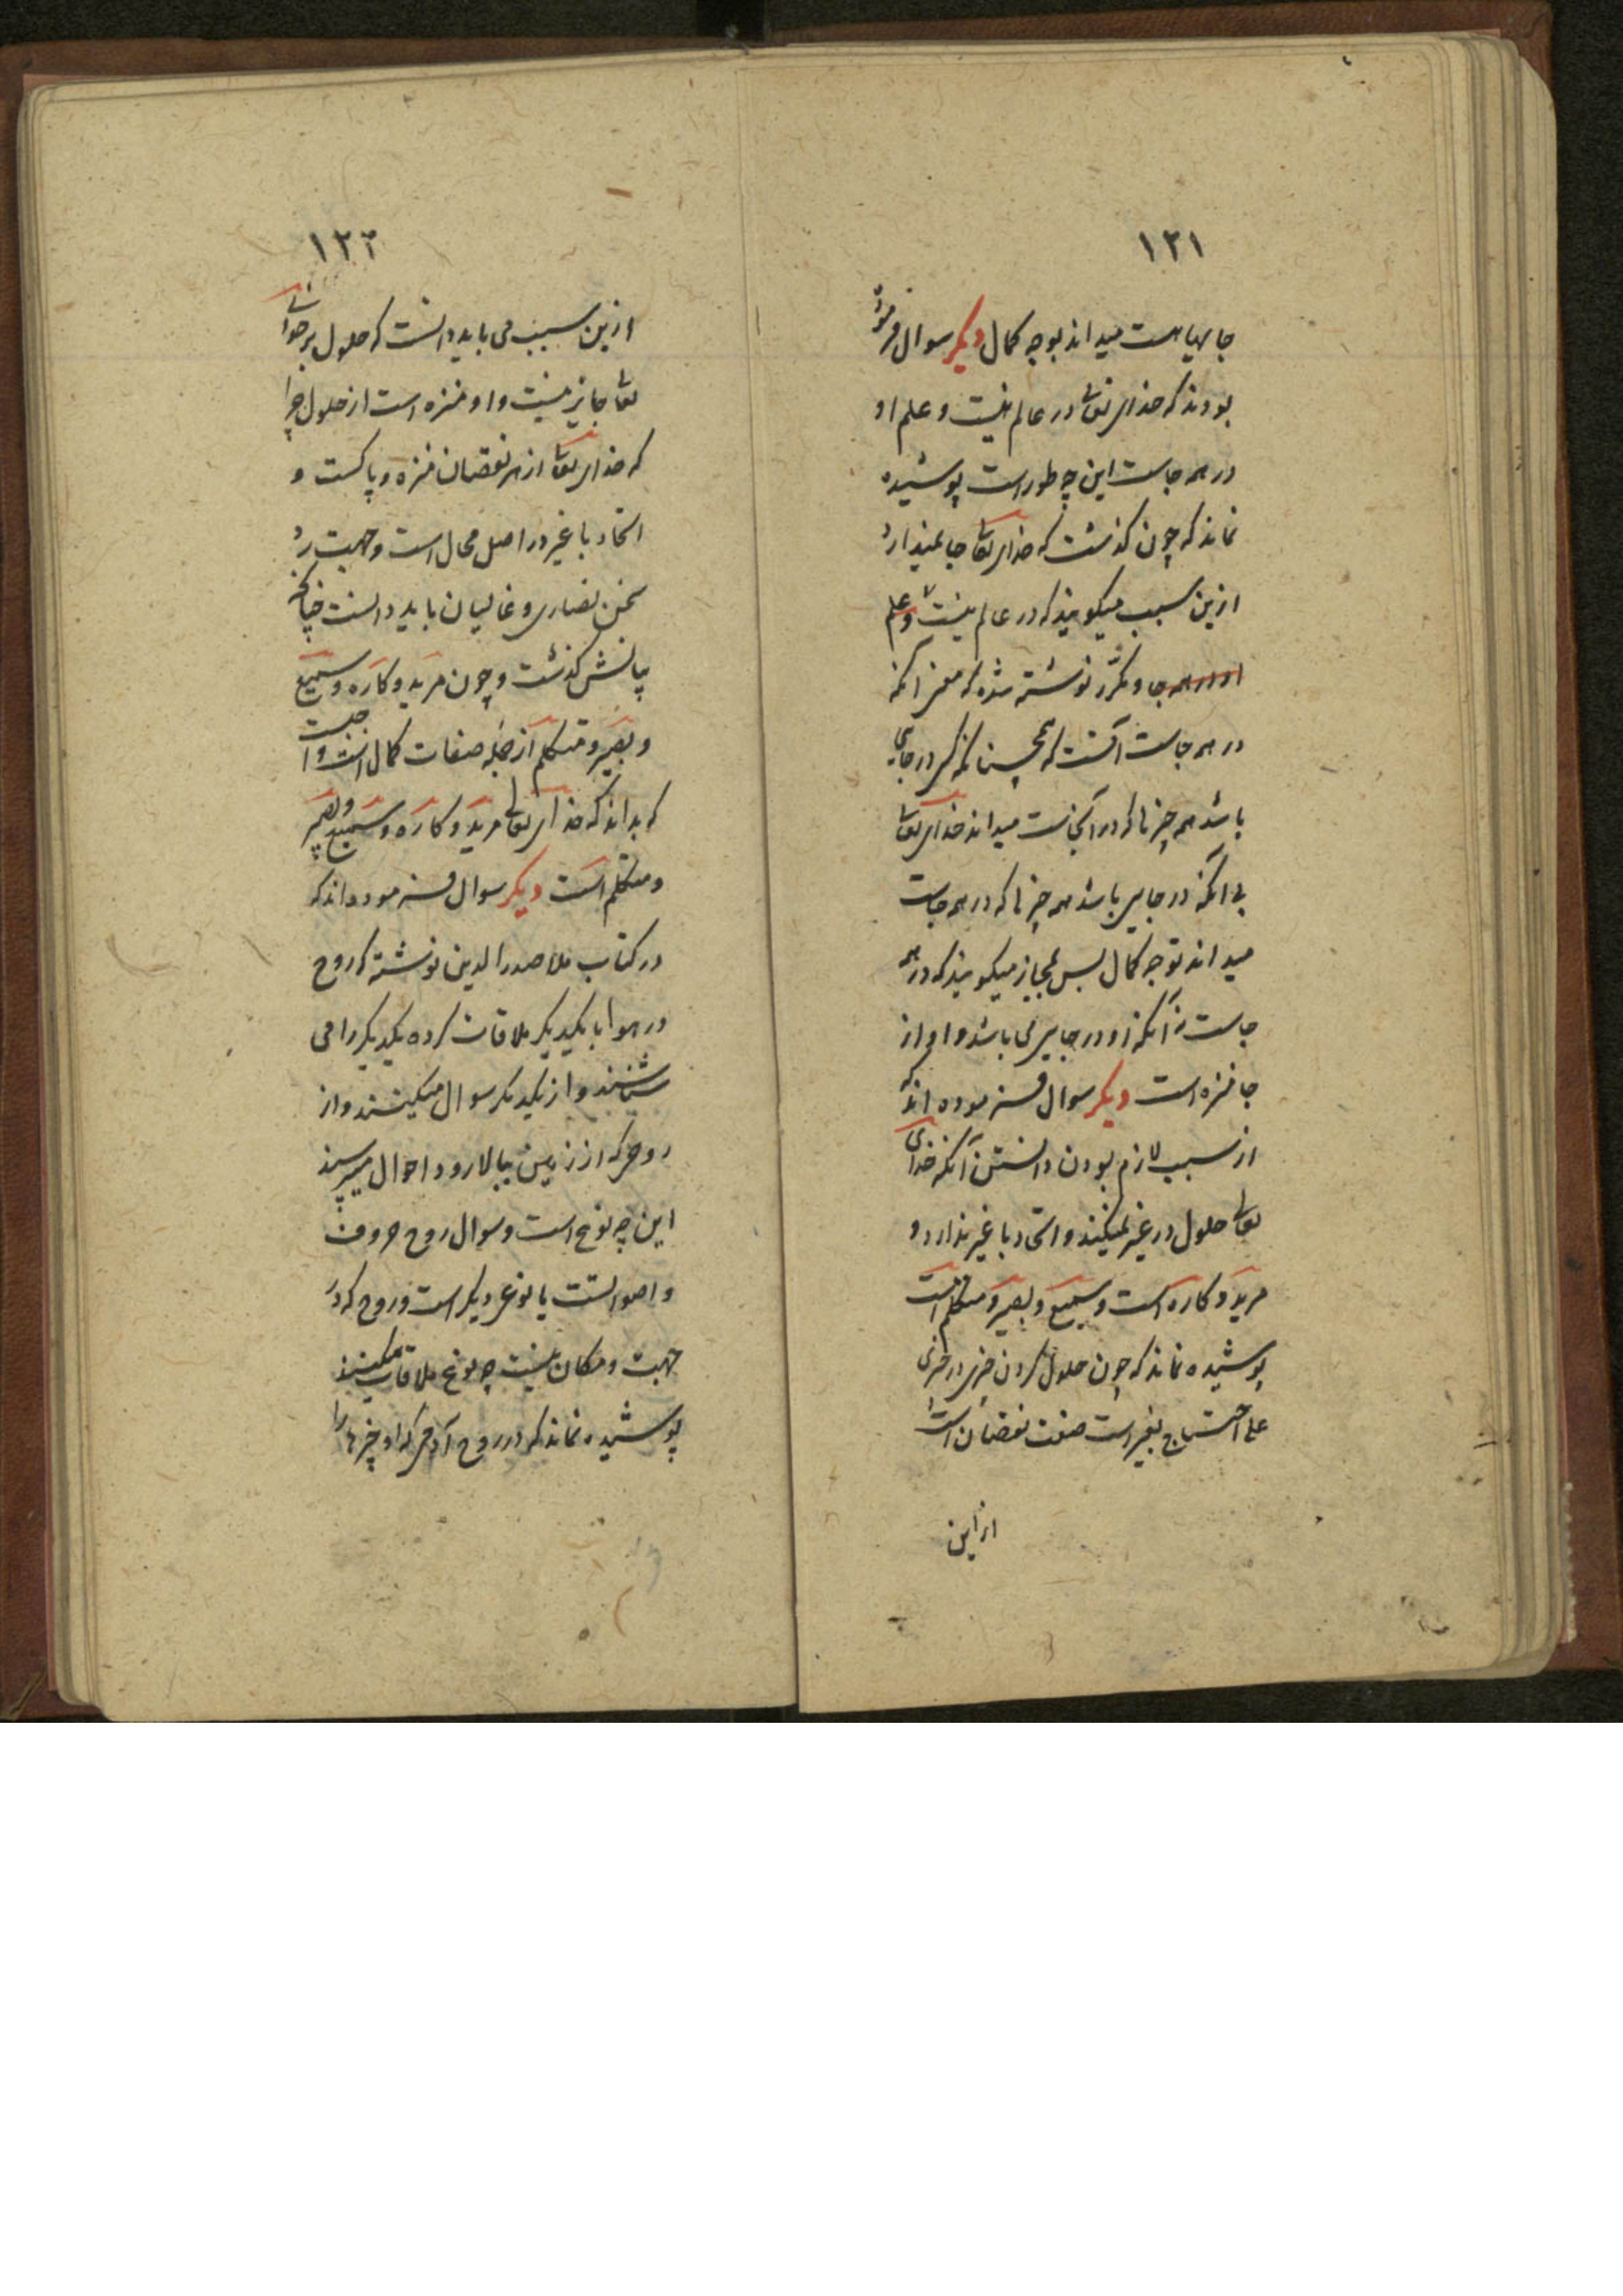 ١٢١
جاهیا هست میداند بوجه کمال دیکر سوال فرموده
بودند که خدای تعالی در عالم نیست و علم او
در همه جاست این چه طور است پوشیده
نماند که چون کذشت که خدای تعالی جا نمیدارد
ازین سبب میکویند که در عالم نیست و علم
او در همه جا و مکرّر نوشته شده که معنی آنکه
در همه جاست آنست که همچنانکه کسی در جایی
باشد همه چیزها که در آنجاست میداند خدای تعالی
بی آنکه در جایی باشد همه چیزها که در همه جاست
میداند بوجه کمال پس بمجاز میکویند که در همه
جاست نه آنکه او در جایی می باشد و او از
جا منزه است دیکر سوال فرموده اند که
از سبب لازم بودن دانستن آنکه خدای
تعالی حلول در غیر نمیکند و اتحاد با غیر ندارد و
مرید و کاره است و سمیع و بصیر و متکلم است
پوشیده نماند که چون حلول کردن چیزی در چیزی
علی احتیاج بغیر است صفت نقصان است
از این
١٢٢
ازین سبب می باید دانست که حلول بر خدای
تعالی جایز نیست و او منزه است از حلول چرا
که خدای تعالی از هر نقصان منزه و پاکست و
اتحاد با غیر در اصل محال است و جهت ردّ
سخن نصاری و غالیان باید دانست چنانچه
بیانش کذشت و چون مرید و کاره و سمیع
و بصیر و متکلم از جمله صفات کمال است واجبست
که بداند که خدای تعالی مرید و کاره و سمیع و بصیر
و متکلم است دیکر سوال فرموده اند که
در کتاب ملا صدرالدین نوشته که روح
در هوا با یکدیکر ملاقات کرده یکدیکر را می
شناسند و از یکدیکر سوال میکنند و از
روحی که از زمین ببالا رود احوال میپرسند
این چه نوع است و سوال روح حروف
و اصواتست یا نوعی دیکر است و روح که در
جهت و مکان نیست چه نوع ملاقات میکنند
پوشیده نماند که در روح آدمی که او چیزها را